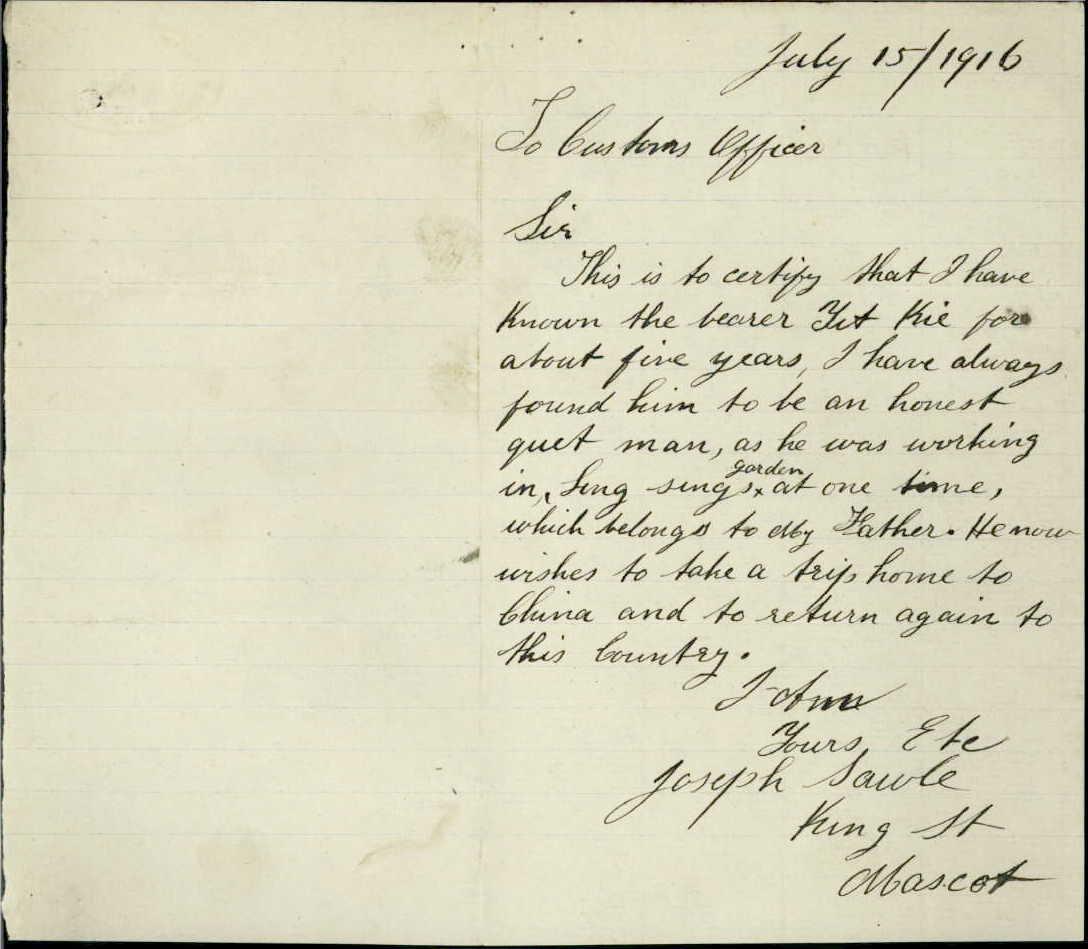 July 15/1916
To Customs Officer
Sir
This is to certify that I have
known the bearer Yit Kie for
about five years, I have always
found him to be an honest
quet man, as he was working
in, Sing sings x garden at one time,
which belongs to My Father. He now
wishes to take a trip home to
China and to return again to
this Country.
I Am
Yours, Etc
Joseph Sawle
King St
Mascot